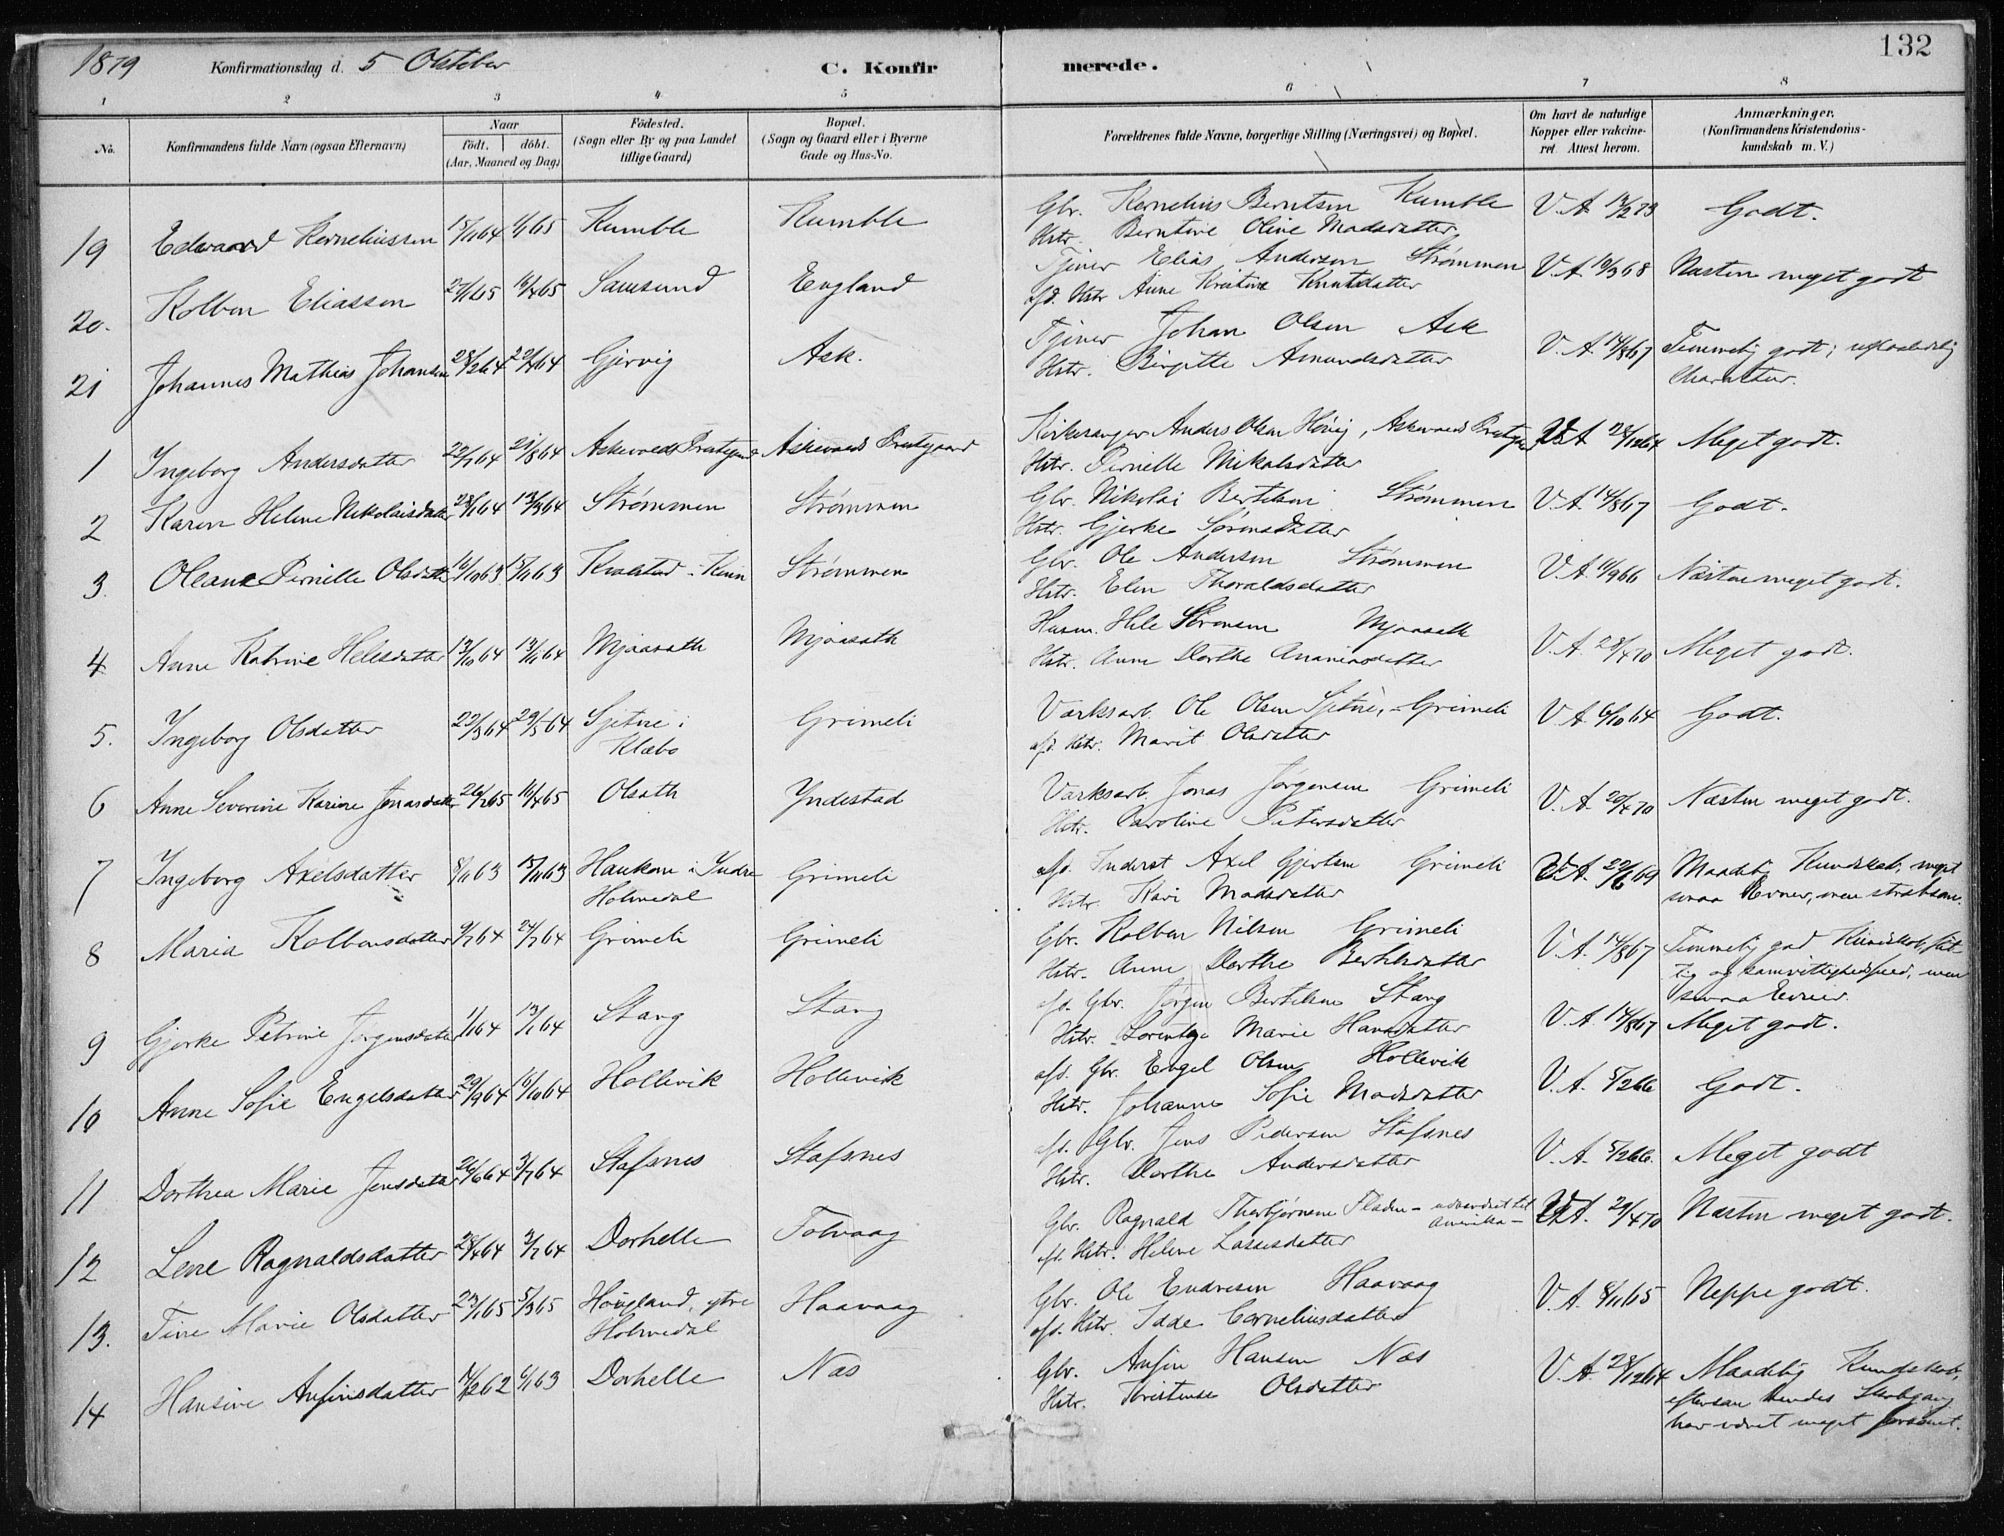 1879 Konfirmationsdag d. 5 Oktober C. Konfirmerede. 132
1 2 3 4 5 6 7 8
No. Konfirmandens fulde Navn (ogsaa Efternavn) Naar født. døbt. (Aar, Maaned og Dag) Fødested. (Sogn eller By og paa Landet tillige Gaard) Bopæl. (Sogn og Gaard eller i Byerne Gade og Hus-No. Forældrenes fulde Navne, borgerlige Stilling (Næringsvei) og Bopæl. Om havt de naturlige Kopper eller vakcineret. Attest herom. Anmærkninger. (Konfirmandens Kristendomskundskab m. V.)
19 Edvard Korneliussen 15/11 64 1/1 65 Kumble Kumble Gbr. Kornelius Berntsen Kumble V.A. Godt.
Hstr. Berntine Oline Madsdatter
20. Kolben Eliassen 16/4 65 Samsund England Tjener Elias Andersen Strømmen V.A. 10/3 68 Næsten meget godt
afd. Hstr. Anne Kristine Knutsdatter
21 Johannes Mathias Johansen 28/2 64 Gjervig Ask. Tjener Johan Olsen Ask V.A. 14/8 67 Temmelig godt; upaalidelig
Hstr. Birgitte Amundsdatter Charakter.
1 Ingeborg Andersdatter 22/7 64 21/8 64 Askevold Prestegaard Askevold Prestegaard Kirkesanger Anders Olsen Høvig, Askevold Prestegd V.A. 28/12 64 Meget godt.
Hstr. Pernille Mikalsdatter
2 Karen Helene Nikolaisdatter 28/1 64 13/3 64 Strømmen Strømmen Gbr. Nikolai Bertelsen Strømmen V.A. 14/8 67 Godt.
Hstr. Gjerke Sørensdatter
3. Oleane Pernille Olsdatter 16/10 63 15/11 63 Kvalstad - Kinn Strømmen Gbr. Ole Andersen Strømmen V.A. 11/9 66 Næsten meget godt.
Hstr. Elen Thoraldsdatter
4 Anne Katrine Helesdatter 13/10 64 13/11 64 Mjaasæth Mjaasæth Husm. Hele Sørensen Mjaasæth V.A. 28/4 70 Meget godt.
Hstr. Anne Dorthe Ananiasdatter
5. Ingeborg Olsdatter 22/3 64 29/5 64 Sjetne i Klæbo Grimeli Værksarb. Ole Olsen Sjetne, Grimeli V.A. 6/10 64 Godt.
afd. Hstr. Marit Olsdatter
6 Anne Severine Karine Jonasdatter 26/2 65 16/4 65 Olsæth Yndestad Værksarb. Jonas Jørgensen Grimeli V.A. 20/4 70 Næsten meget godt.
Hstr. Caroline Petersdatter
7 Ingeborg Axelsdatter 8/11 63 15/11 63 Haukom i Indre Holmedal Grimeli afd. Inderst Axel Gjertsen Grimeli V.A. 22/6 69 Maadelig Kundskab, meget
Hstr. Kari Madsdatter smaa Evner, men strebsom.
8 Maria Kolbensdatter 9/7 64 24/7 64 Grimeli Grimeli Gbr. Kolben Nilsen Grimeli V.A. 14/8 67 Temmelig god Kundskab, flit-
Hstr. Anne Dorthe Bertelsdatter tig og samvittighedsfuld, men
smaa Evner.
9 Gjerke Petrine Jørgensdatter 1/1 64 13/1 64 Stang Stang afd. Gbr. Jørgen Bertelsen Stang V.A. 14/8 67 Meget godt.
Hstr. Lorentze Marie Hansdatter
10 Anne Sofie Engelsdatter 29/9 64 16/10 64 Hollevik Hollevik afd. Gbr. Engel Olsen Hollevik V.A. 5/2 66 Godt.
Hstr. Johanne Sofie Madsdatter
11 Dorthea Marie Jensdatter 26/6 64 3/7 64 Stafsnes Stafsnes afd. Gbr. Jens Pedersen Stafsnes V.A. 5/2 66. Meget godt
Hstr. Dorthe Andersdatter
12 Lene Ragnaldsdatter 3/7 64 Dorhelle Tolvaag Gbr. Ragnald Thorbjørnsen Fladen - udvandret til Amerika - V.A. 29/4 70 Næsten meget godt.
afd. Hstr. Helene Lassesdatter
13. Tine Marie Olsdatter 23/1 65 5/3 65 Høugland, ytre Holmedal Haavaag Gbr. Ole Endresen Haavaag V.A. 8/11 65 Neppe godt.
afd. Hstr. Corneliusdatter
14 Hansine Anfinsdatter 6/1 63 Dorhelle Næs Gbr. Anfin Hansen Næs V.A. 28/12 64 Maadelig Kundskab,
Hstr. Kristense Olsdatter eftersom hendes Skolegang
har været meget forsømt.